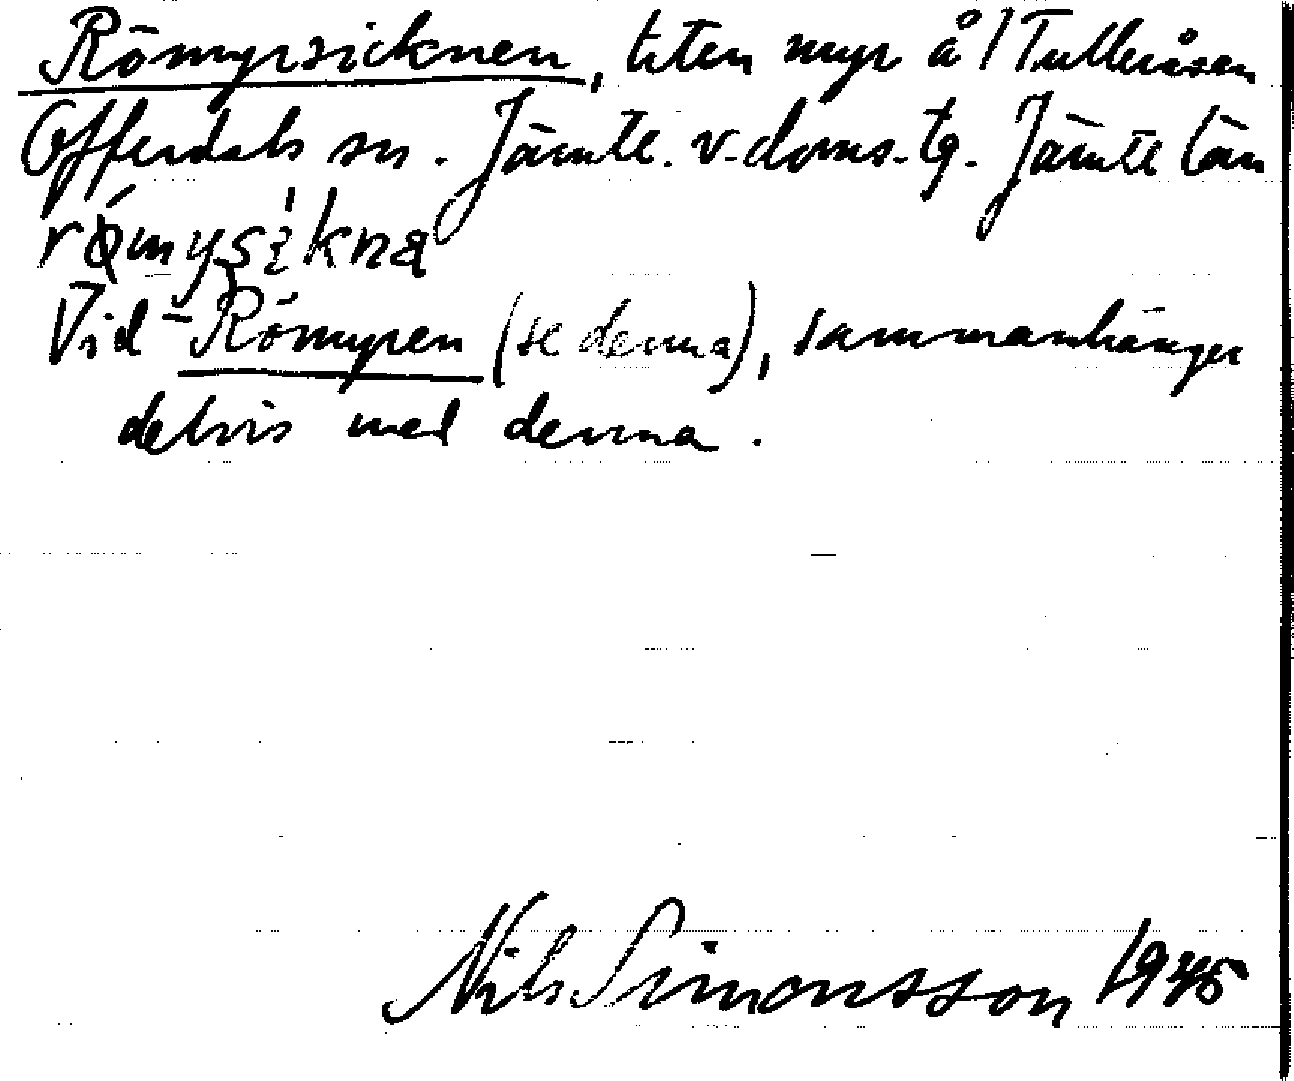 Römyrsicknen, liten myr å 1 Tulleråsen
Offerdals sn. Jämtl. v. doms. tg. Jämtl län
Vid Römyren (se denna), sammanhänger
delvis med denna.
Nils Simonsson 1945